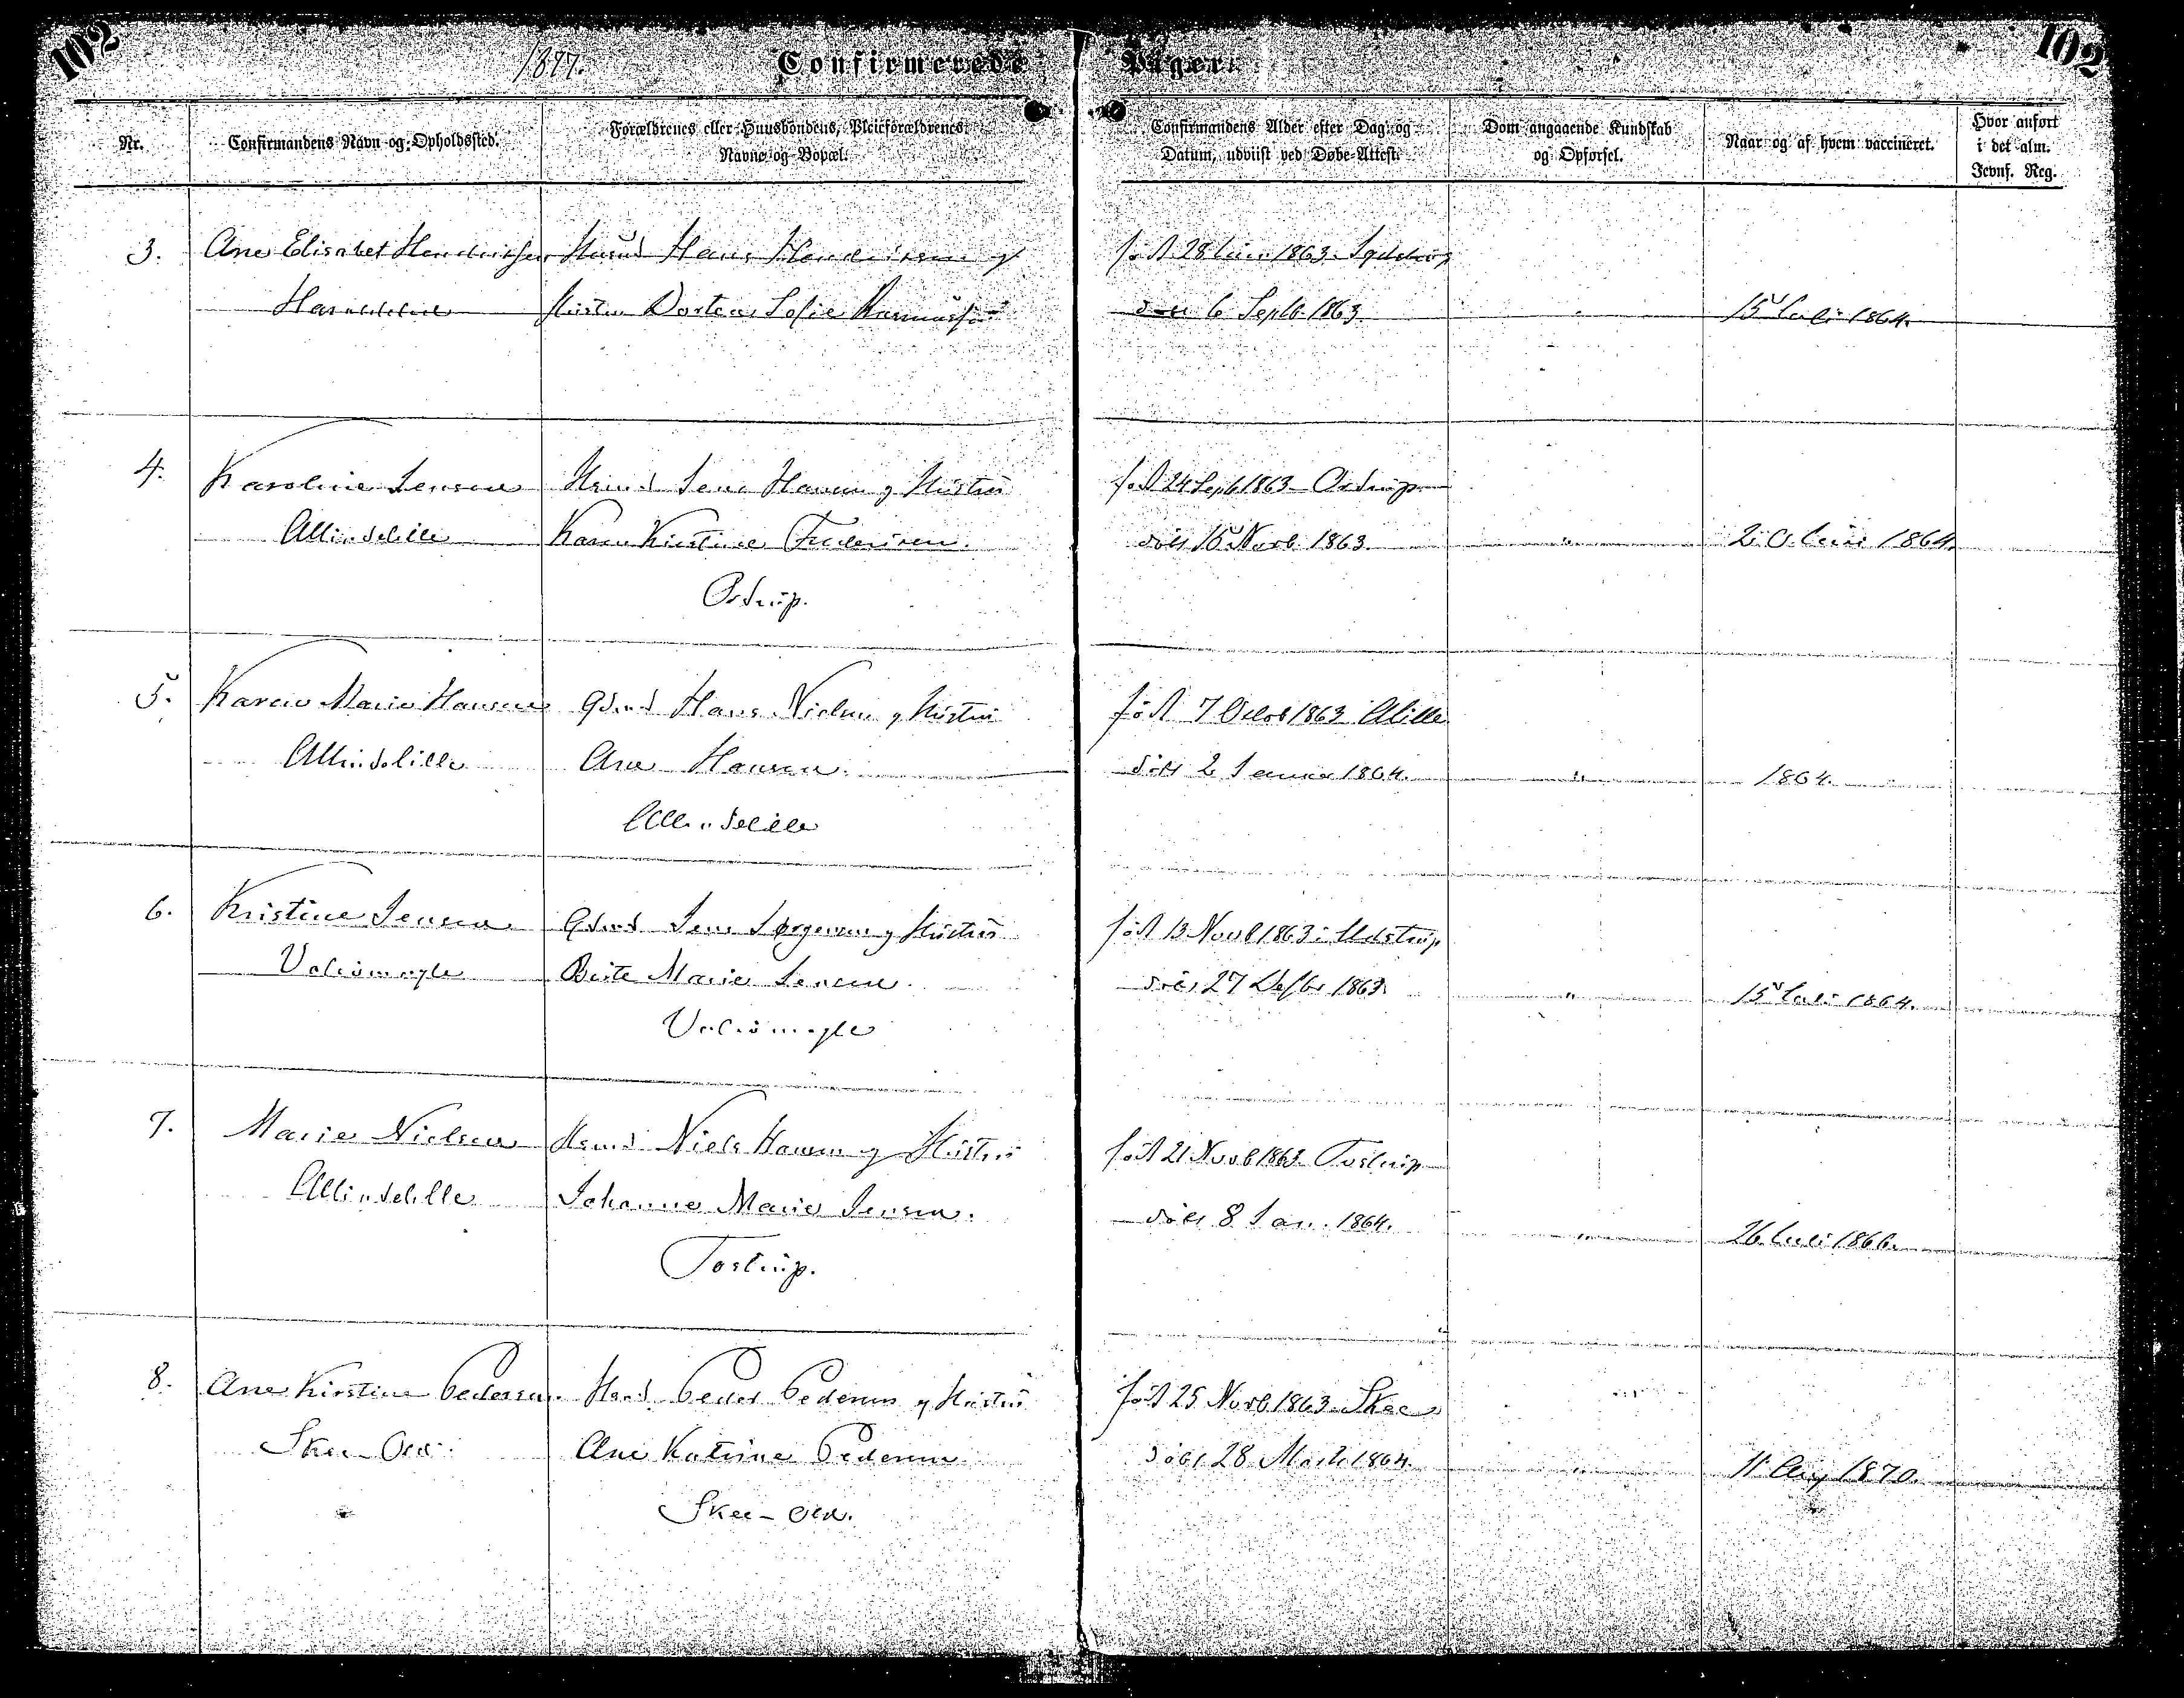 102
102
1877. Confirmerede Piger.
Nr.
Confirmandens Navn og Opholdssted.
Forældrenes eller Huusbondens, Pleieforældrenes
Navne og Bopæl.
Confirmandens Alder efter Dag og
Datum, udviist ved Døbe-Attest.
Dom angaaende Kundskab
og Opførsel.
Naar og af hvem vaccineret.
Hvor anført
i det alm.
Jevnf. Reg.
3. Ane Elisabet Hendriksen Husmd Hans Hendriksen og født 28 Juni 1863
Hustru Dortea Sofie Rasmussen døbt 6 Septb. 1863 " 15 Juli 1864.
4. Karoline Jensen Hsmd Jens Hansen og Hustru født 24 Septb 1863 Ostrup
Allindelille Karen Kirstine Frederiksen. døbt 15 Novb 1863. " 20 Juni 1864.
Ostrup.
5. Karen Marie Hansen Gdmd Hans Nielsen og Hustru født 7 Octob 1863 Alille
Allindelille Ane Hansen. døbt 2 Januar 1864. " 1864.
Allindelille
6. Kristine Jensen Gdmd Jens Jørgensen og Hustru født 13 Novb 1863 i
Valsømagle Birte Marie Jensen. døbt 27 Decbr 1863. " 15 Juli 1864.
Valsømagle
7. Marie Nielsen Hsmd Niels Hansen og Hustru født 21 Novb 1863 Tostrup
Allindelille Johanne Marie Jensen. døbt 8 Jan. 1864. " 26 Juli 1866.
Tostrup.
8. Ane Kirstine Pedersen. Hsmd Peder Pedersen og Hustru født 25 Novb. 1863 Skee
Skee-Ore. Ane Katrine Pedersen døbt 28 Marts 1864. " 11 Aug 1870.
Skee-Ore.